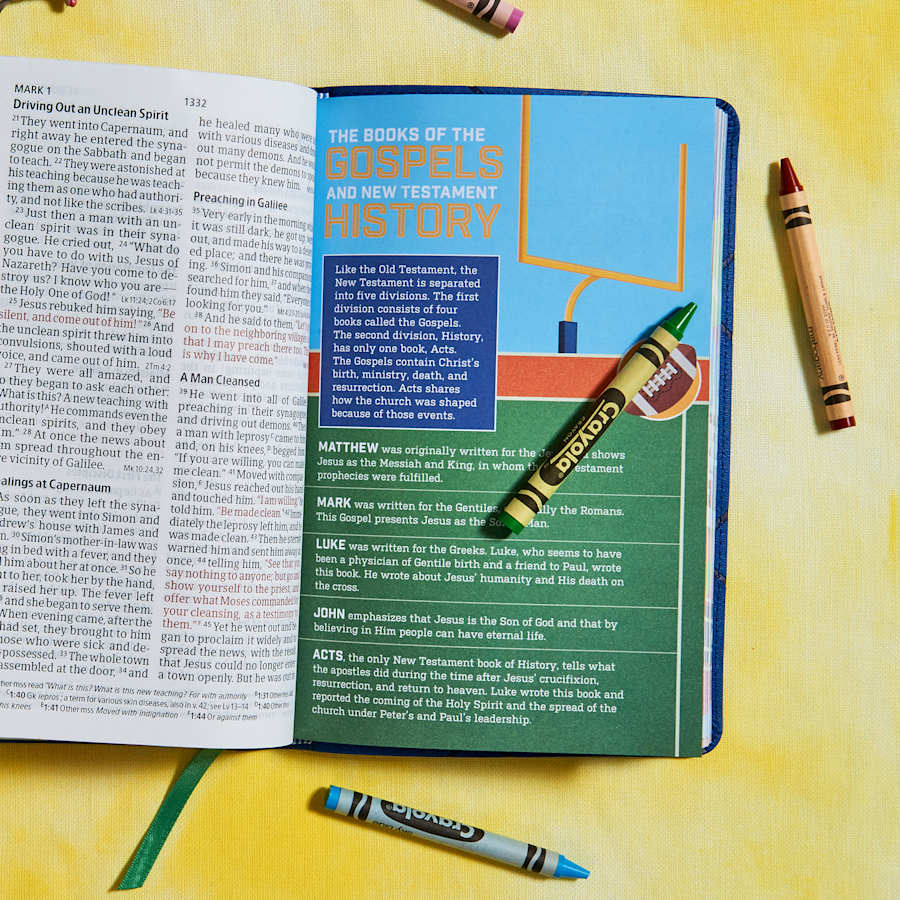 MARK 1
1332
Driving Out an Unclean Spirit
21 They went into Capernaum, and
right away he entered the syna-
gogue on the Sabbath and began
to teach. 22 They were astonished at
his teaching because he was teach-
ing them as one who had authori-
ty, and not like the scribes. Lk 4:31-35
23 Just then a man with an un-
clean spirit was in their syna-
gogue. He cried out, 24 "What do
you have to do with us, Jesus of
Nazareth? Have you come to de-
stroy us? I know who you are —
the Holy One of God!" Lv 11:24; 2Co 6:17
25 Jesus rebuked him saying, "Be
silent, and come out of him!" 26 And
the unclean spirit threw him into
convulsions, shouted with a loud
voice, and came out of him. 2Tm 4:2
27 They were all amazed, and
so they began to ask each other:
What is this? A new teaching with
authority! A He commands even the
unclean spirits, and they obey
him." 28 At once the news about
him spread throughout the en-
vicinity of Galilee. Mk 10:24,32
Healings at Capernaum
As soon as they left the syna-
gogue, they went into Simon and
drew's house with James and
30 Simon's mother-in-law was
in bed with a fever, and they
him about her at once. 31 So he
to her, took her by the hand,
raised her up. The fever left
and she began to serve them.
When evening came, after the
had set, they brought to him
those who were sick and de-
possessed. 33 The whole town
assembled at the door, 34 and
he healed many who were
with various diseases and
out many demons. And he
not permit the demons to
because they knew him.
Preaching in Galilee
35 Very early in the morning
it was still dark, he got up,
out, and made his way to a
ed place; and there he was
ing. 36 Simon and his companions
searched for him, 37 and when
found him they said, "Everyone
looking for you."
38 And he said to them, "Let's
on to the neighboring villages
that I may preach there too.
is why I have come."
A Man Cleansed
39 He went into all of Galilee
preaching in their synagogues
and driving out demons. 40
a man with leprosy came to
and, on his knees, begged him
"If you are willing, you can make
me clean." 41 Moved with compas-
sion, Jesus reached out his hand
and touched him. "I am willing,"
told him. "Be made clean." 42 Imme-
diately the leprosy left him, and
was made clean. 43 Then he sternly
warned him and sent him away
once, 44 telling him, "See that you
say nothing to anyone; but go and
show yourself to the priest,
offer what Moses commanded
your cleansing, as a testimony to
them." 45 Yet he went out and
gan to proclaim it widely and
spread the news, with the result
that Jesus could no longer enter
a town openly. But he was out
Other mss read "What is this? What is this new teaching? For with authority B 1:31 Other mss
C 1:40 Gk lepros; a term for various skin diseases, also in v. 42; see Lv 13–14 D 1:40 Other mss
his knees E 1:41 Other mss Moved with indignation F 1:44 Or against them
THE BOOKS OF THE
GOSPELS
AND NEW TESTAMENT
HISTORY
Like the Old Testament, the
New Testament is separated
into five divisions. The first
division consists of four
books called the Gospels.
The second division, History,
has only one book, Acts.
The Gospels contain Christ's
birth, ministry, death, and
resurrection. Acts shares
how the church was shaped
because of those events.
MATTHEW was originally written for the shows
Jesus as the Messiah and King, in whom Testament
prophecies were fulfilled.
MARK was written for the Gentiles, the Romans.
This Gospel presents Jesus as the
LUKE was written for the Greeks. Luke, who seems to have
been a physician of Gentile birth and a friend to Paul, wrote
this book. He wrote about Jesus' humanity and His death on
the cross.
JOHN emphasizes that Jesus is the Son of God and that by
believing in Him people can have eternal life.
ACTS, the only New Testament book of History, tells what
the apostles did during the time after Jesus' crucifixion,
resurrection, and return to heaven. Luke wrote this book and
reported the coming of the Holy Spirit and the spread of the
church under Peter's and Paul's leadership.
Crayola
Crayola
sky blue